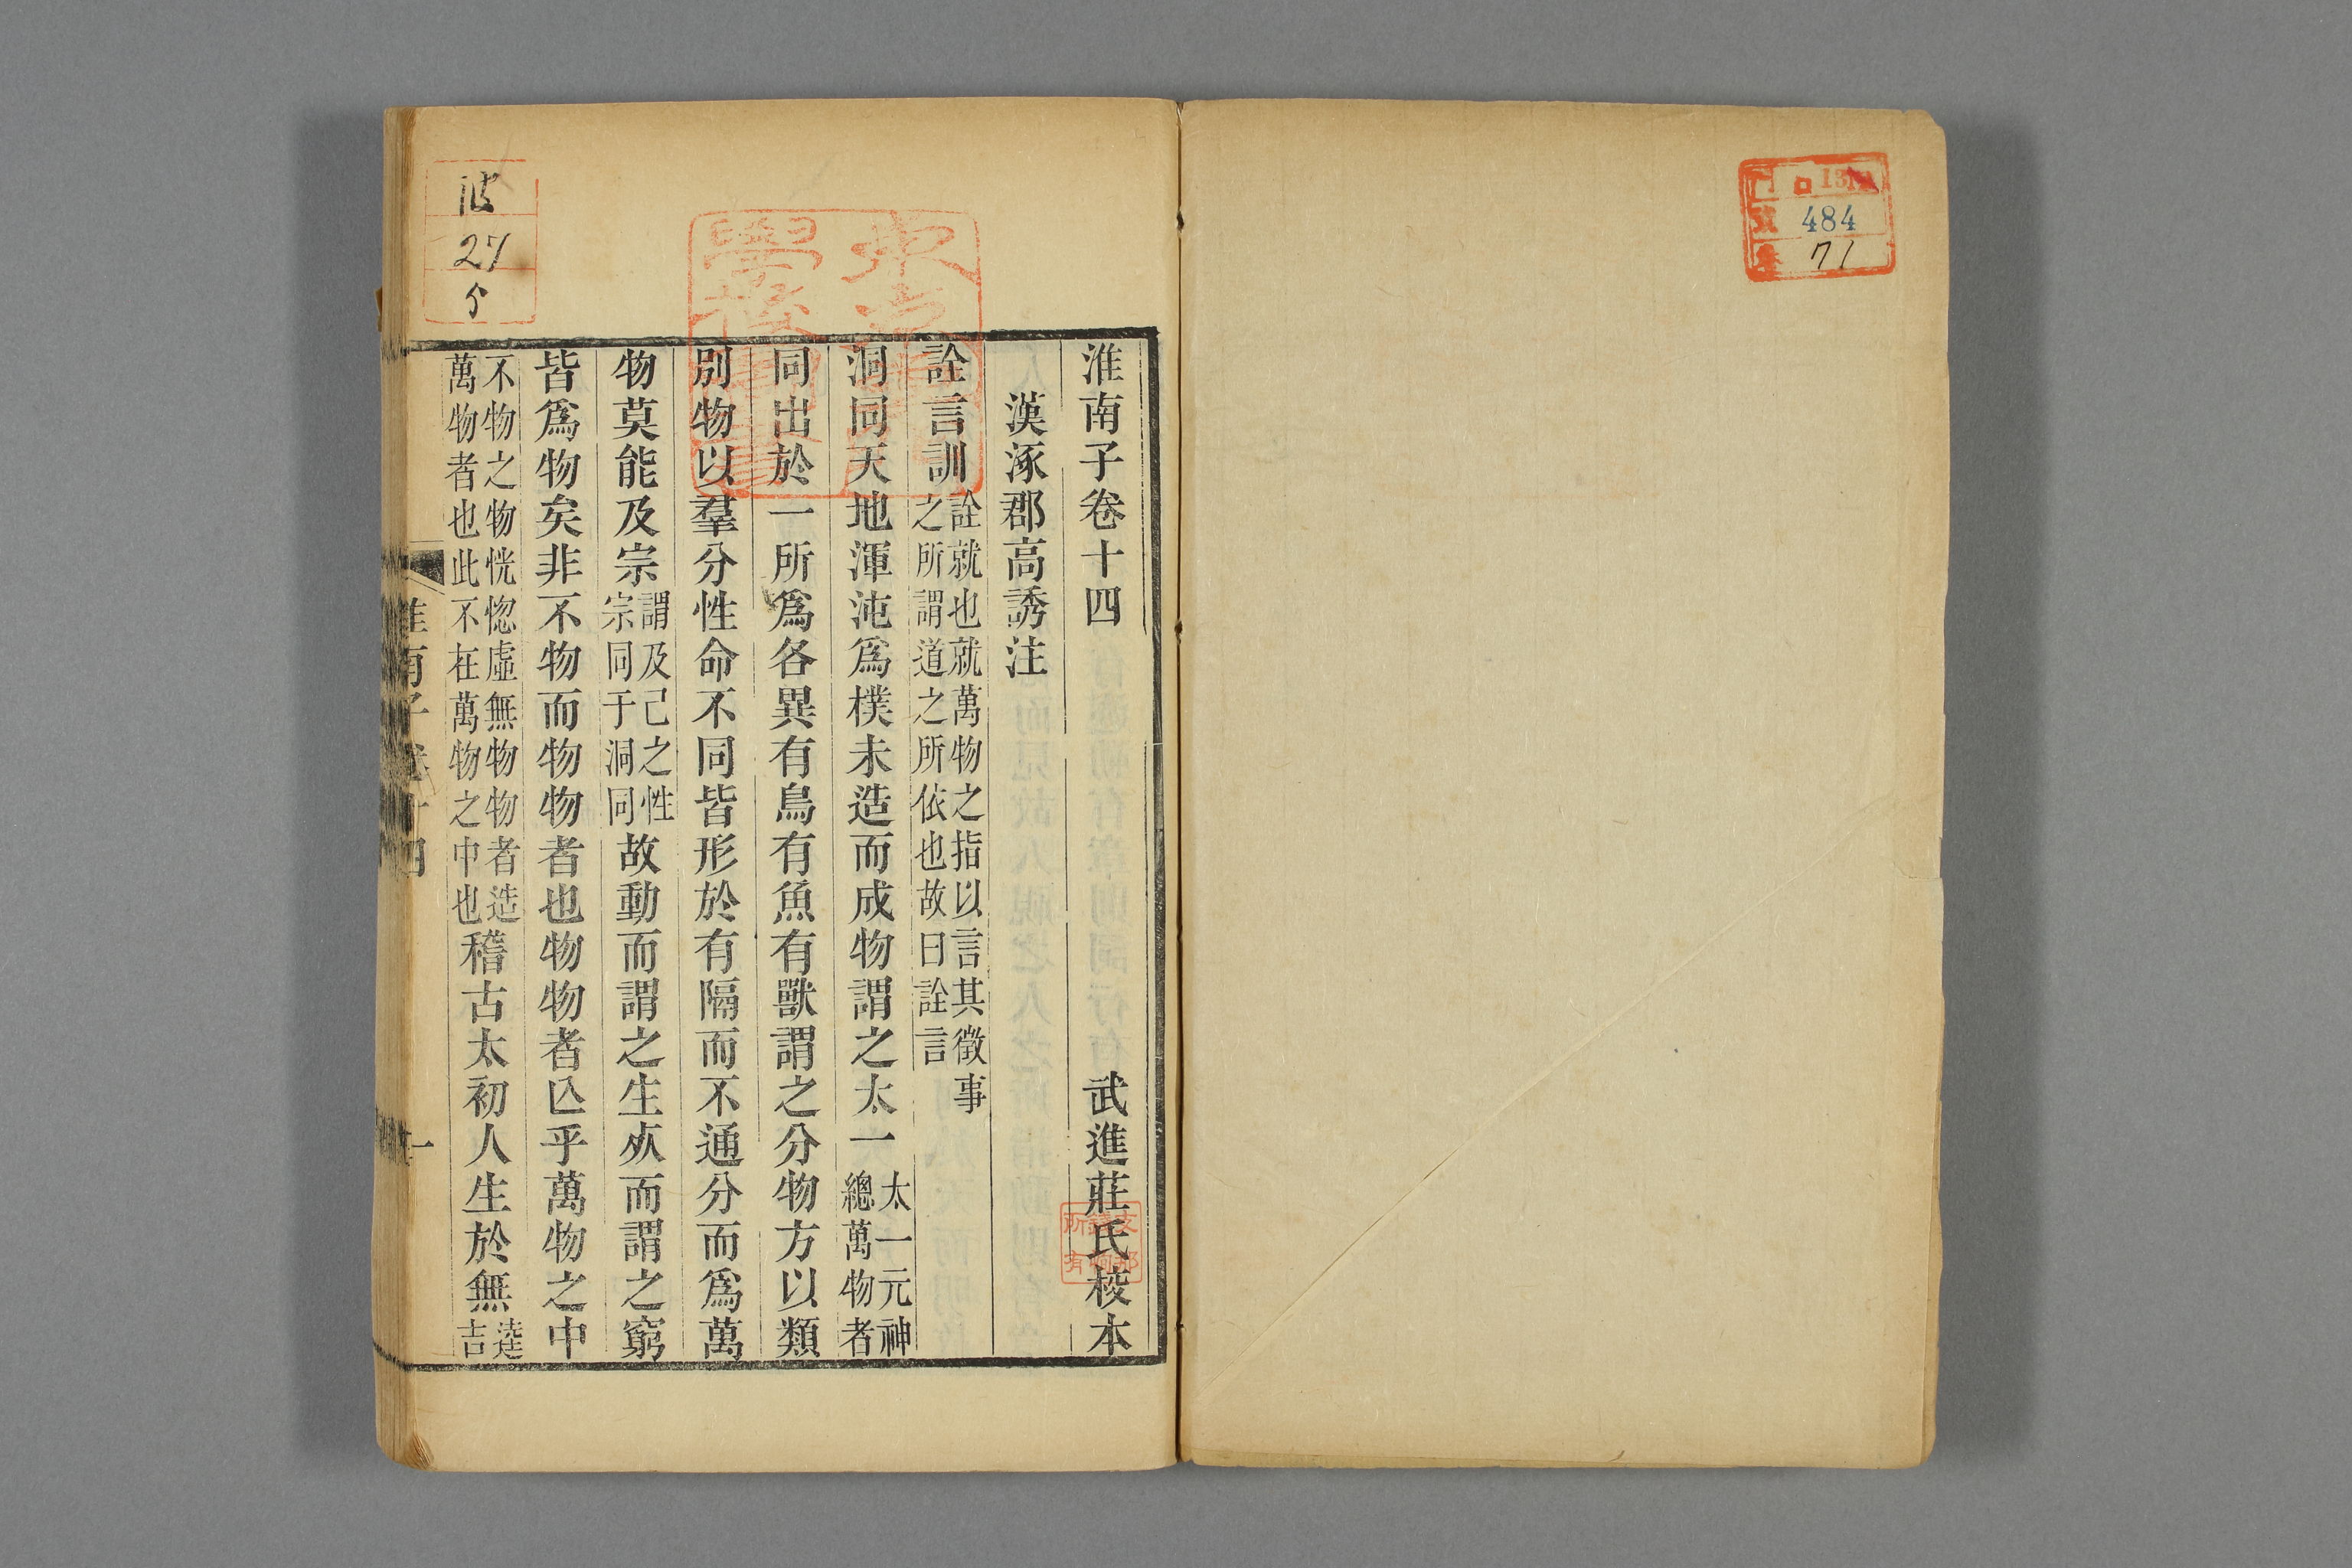 484
71
淮南子卷十四 武進莊氏校本
漢涿郡高誘注
詮言訓詮就也就萬物之指以言其徵事之所謂道之所依也故曰詮言
洞同天地渾沌爲樸未造而成物謂之太一太一元神總萬物者
同出於一所爲各異有鳥有魚有獸謂之分物方以類
別物以羣分性命不同皆形於有隔而不通分而爲萬
物莫能及宗謂及己之性宗同于洞同故動而謂之生𣦸而謂之窮
皆爲物矣非不物而物物者也物物者亾乎萬物之中
不物之物恍惚虛無物物者造萬物者也此不在萬物之中也稽古太初人生於無逵吉
淮南子卷十四
一
27
5